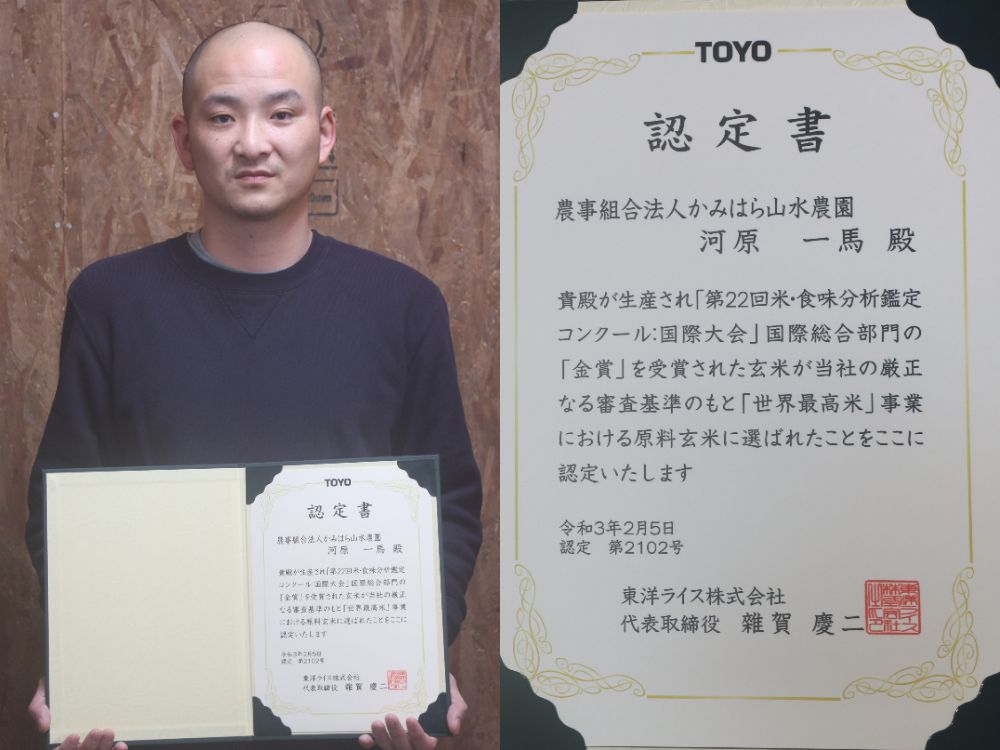 TOYO
認定書
農事組合法人かみはら山水農園
河原 一馬 殿
貴殿が生産され「第22回米・食味分析鑑定
コンクール:国際大会」国際総合部門の
「金賞」を受賞された玄米が当社の厳正
なる審査基準のもと「世界最高米」事業
における原料玄米に選ばれたことをここに
認定いたします
令和3年2月5日
認定 第2102号
東洋ライス株式会社
代表取締役 雜賀 慶二
TOYO
認定書
農事組合法人かみはら山水農園
河原 一馬 殿
貴殿が生産され「第22回米・食味分析鑑定
コンクール:国際大会」国際総合部門の
「金賞」を受賞された玄米が当社の厳正
なる審査基準のもと「世界最高米」事業
における原料玄米に選ばれたことをここに
認定いたします
令和3年2月5日
認定 第2102号
東洋ライス株式会社
代表取締役 雜賀 慶二